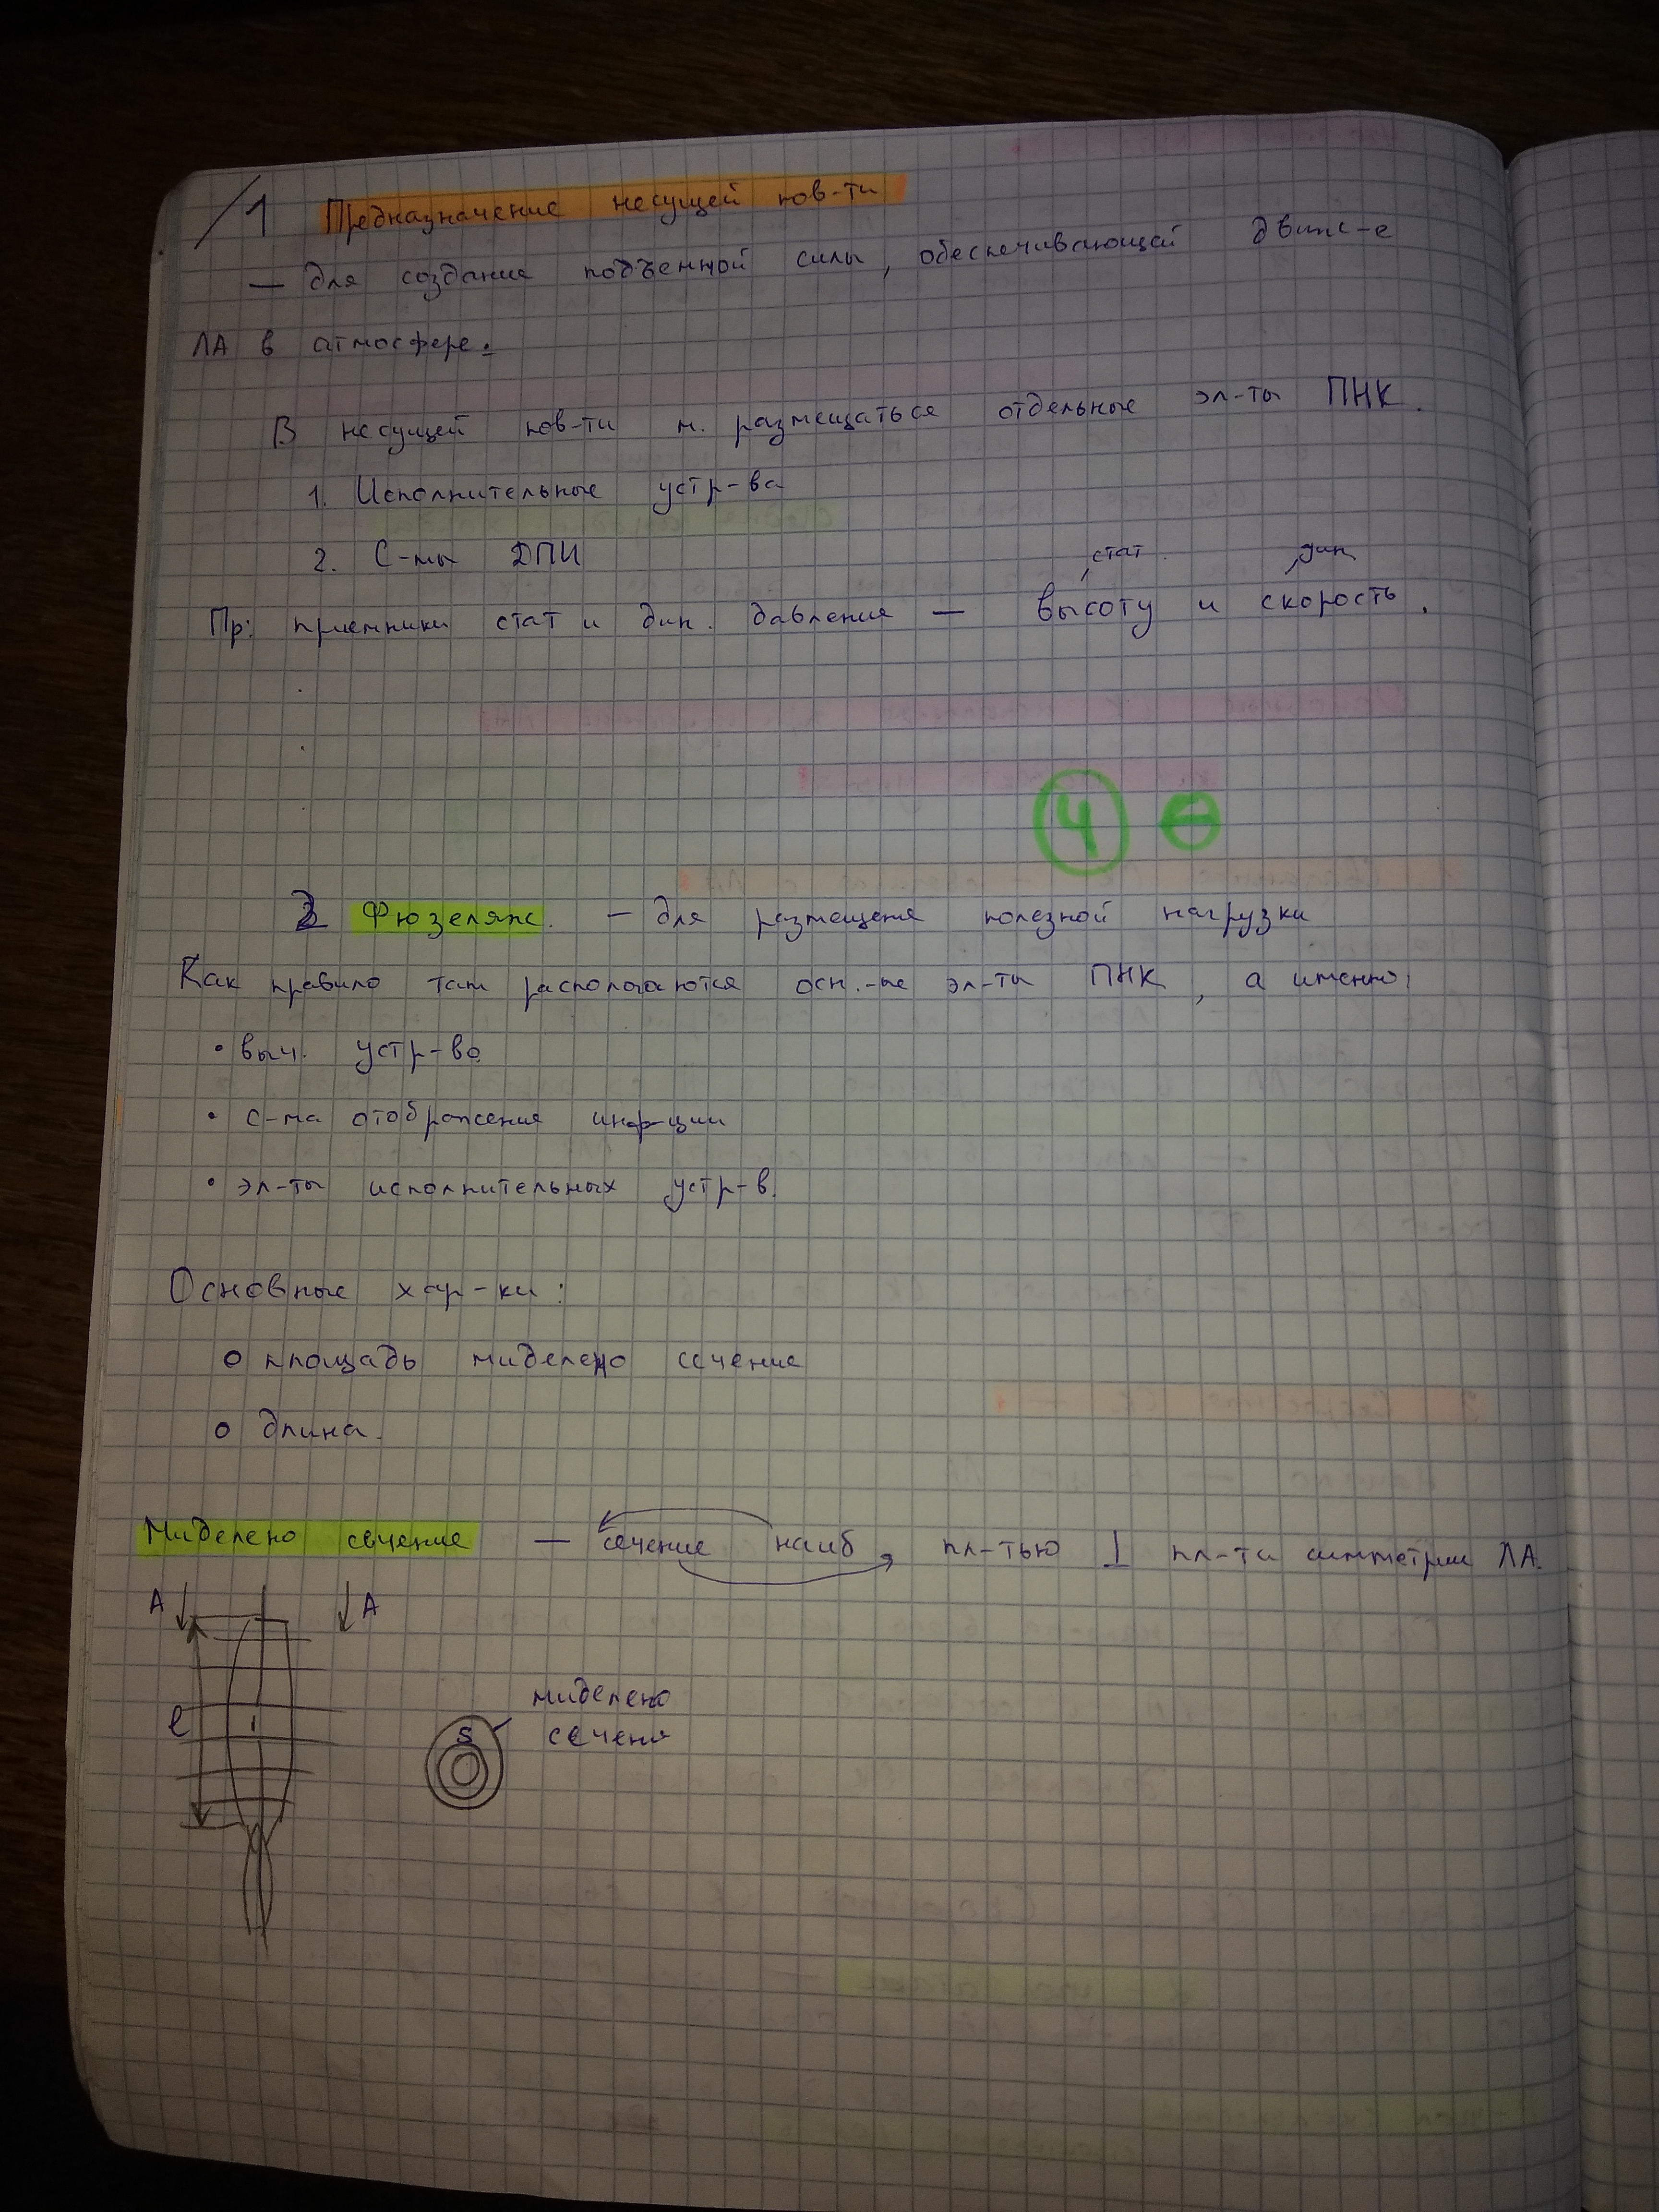 1 Предназначение несущей пов-ти
— для создания подъемной силы, обеспечивающей движ-е
ЛА в атмосфере.
В несущей пов-ти м. размещаться отдельные эл-ты ПНК.
1. Исполнительные устр-ва
2. С-мы ДПИ
стат. дин.
Пр: приемники стат и дин. давления — высоту и скорость.
4
2 Фюзеляж. — для размещения полезной нагрузки
Как правило там распологаются осн.-ые эл-ты ПНК, а именно:
• выч. устр-во
• с-ма отображения инф-ции
• эл-ты исполнительных устр-в.
Основные хар-ки:
о площадь миделено сечение
о длина.
Миделено сечение — сечение наиб пл-тью ⊥ пл-ти симметрии ЛА.
A A
миделено
l S сечени